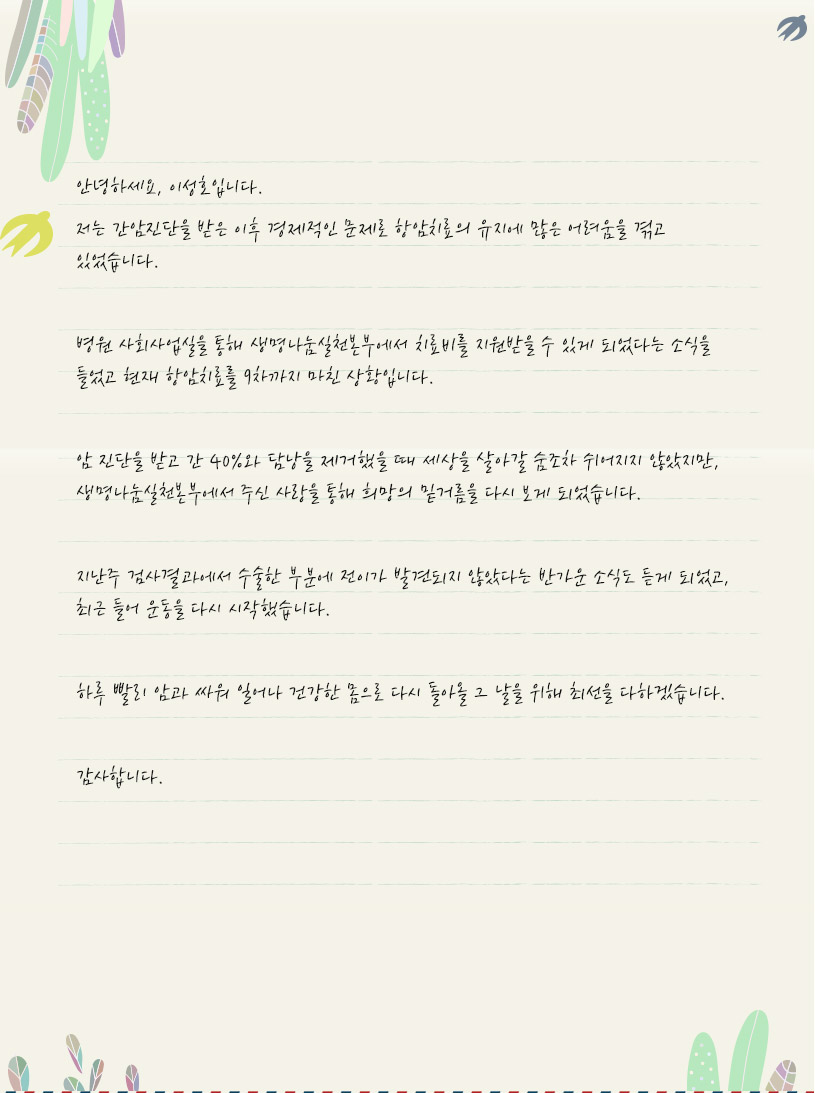 안녕하세요, 이성호입니다.
저는 간암진단을 받은 이후 경제적인 문제로 항암치료의 유지에 많은 어려움을 겪고
있었습니다.
병원 사회사업실을 통해 생명나눔실천본부에서 치료비를 지원받을 수 있게 되었다는 소식을
들었고 현재 항암치료를 9차까지 마친 상황입니다.
암 진단을 받고 간 40%와 담낭을 제거했을 때 세상을 살아갈 숨조차 쉬어지지 않았지만,
생명나눔실천본부에서 주신 사랑을 통해 희망의 밑거름을 다시 보게 되었습니다.
지난주 검사결과에서 수술한 부분에 전이가 발견되지 않았다는 반가운 소식도 듣게 되었고,
최근 들어 운동을 다시 시작했습니다.
하루 빨리 암과 싸워 일어나 건강한 몸으로 다시 돌아올 그 날을 위해 최선을 다하겠습니다.
감사합니다.